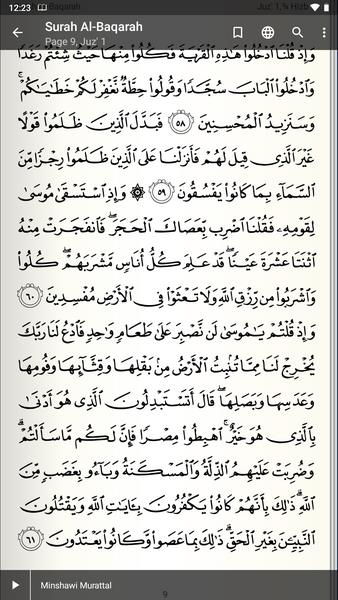 12:23
Surah Al-Baqarah
Page 9, Juz' 1
وَإِذْ قُلْنَا ٱدْخُلُوا۟ هَٰذِهِ ٱلْقَرْيَةَ فَكُلُوا۟ مِنْهَا حَيْثُ شِئْتُمْ رَغَدًا
وَٱدْخُلُوا۟ ٱلْبَابَ سُجَّدًا وَقُولُوا۟ حِطَّةٌ نَّغْفِرْ لَكُمْ خَطَٰيَٰكُمْ ۚ
وَسَنَزِيدُ ٱلْمُحْسِنِينَ ٥٨ فَبَدَّلَ ٱلَّذِينَ ظَلَمُوا۟ قَوْلًا
غَيْرَ ٱلَّذِى قِيلَ لَهُمْ فَأَنزَلْنَا عَلَى ٱلَّذِينَ ظَلَمُوا۟ رِجْزًا مِّنَ
ٱلسَّمَآءِ بِمَا كَانُوا۟ يَفْسُقُونَ ٥٩ ۞ وَإِذِ ٱسْتَسْقَىٰ مُوسَىٰ
لِقَوْمِهِۦ فَقُلْنَا ٱضْرِب بِّعَصَاكَ ٱلْحَجَرَ ۖ فَٱنفَجَرَتْ مِنْهُ
ٱثْنَتَا عَشْرَةَ عَيْنًا ۖ قَدْ عَلِمَ كُلُّ أُنَاسٍ مَّشْرَبَهُمْ ۖ كُلُوا۟
وَٱشْرَبُوا۟ مِن رِّزْقِ ٱللَّهِ وَلَا تَعْثَوْا۟ فِى ٱلْأَرْضِ مُفْسِدِينَ ٦٠
وَإِذْ قُلْتُمْ يَٰمُوسَىٰ لَن نَّصْبِرَ عَلَىٰ طَعَامٍ وَٰحِدٍ فَٱدْعُ لَنَا رَبَّكَ
يُخْرِجْ لَنَا مِمَّا تُنۢبِتُ ٱلْأَرْضُ مِنۢ بَقْلِهَا وَقِثَّآئِهَا وَفُومِهَا
وَعَدَسِهَا وَبَصَلِهَا ۖ قَالَ أَتَسْتَبْدِلُونَ ٱلَّذِى هُوَ أَدْنَىٰ
بِٱلَّذِى هُوَ خَيْرٌ ۚ ٱهْبِطُوا۟ مِصْرًا فَإِنَّ لَكُم مَّا سَأَلْتُمْ ۗ
وَضُرِبَتْ عَلَيْهِمُ ٱلذِّلَّةُ وَٱلْمَسْكَنَةُ وَبَآءُو بِغَضَبٍ مِّنَ
ٱللَّهِ ۗ ذَٰلِكَ بِأَنَّهُمْ كَانُوا۟ يَكْفُرُونَ بِـَٔايَٰتِ ٱللَّهِ وَيَقْتُلُونَ
ٱلنَّبِيِّـۧنَ بِغَيْرِ ٱلْحَقِّ ۗ ذَٰلِكَ بِمَا عَصَوا۟ وَّكَانُوا۟ يَعْتَدُونَ ٦١
Minshawi Murattal
9